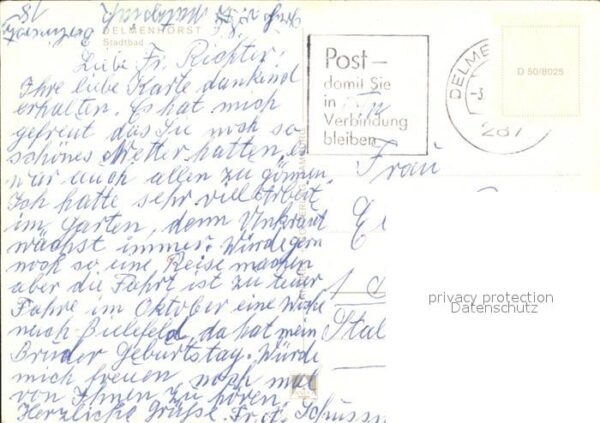 DELMENHORST
Stadtbad
Liebe Fr. Richter!
Ihre liebe Karte dankend
erhalten. Es hat mich
gefreut das Sie noch so
schönes Wetter hatten, es
war auch allen zu gönnen.
Ich hatte sehr viel Arbeit
im Garten, denn Unkraut
wächst immer. Würde gern
noch so eine Reise machen
aber die Fahrt ist zu teuer
Fahre im Oktober eine Woche
nach Bielefeld, da hat mein
Bruder Geburtstag. Würde
mich freuen noch mal
von Ihnen zu hören.
Herzliche Grüße Fr.
Post –
damit Sie
in
Verbindung
bleiben
DELME
287
D 50/8025
An
Frau
privacy protection
Datenschutz